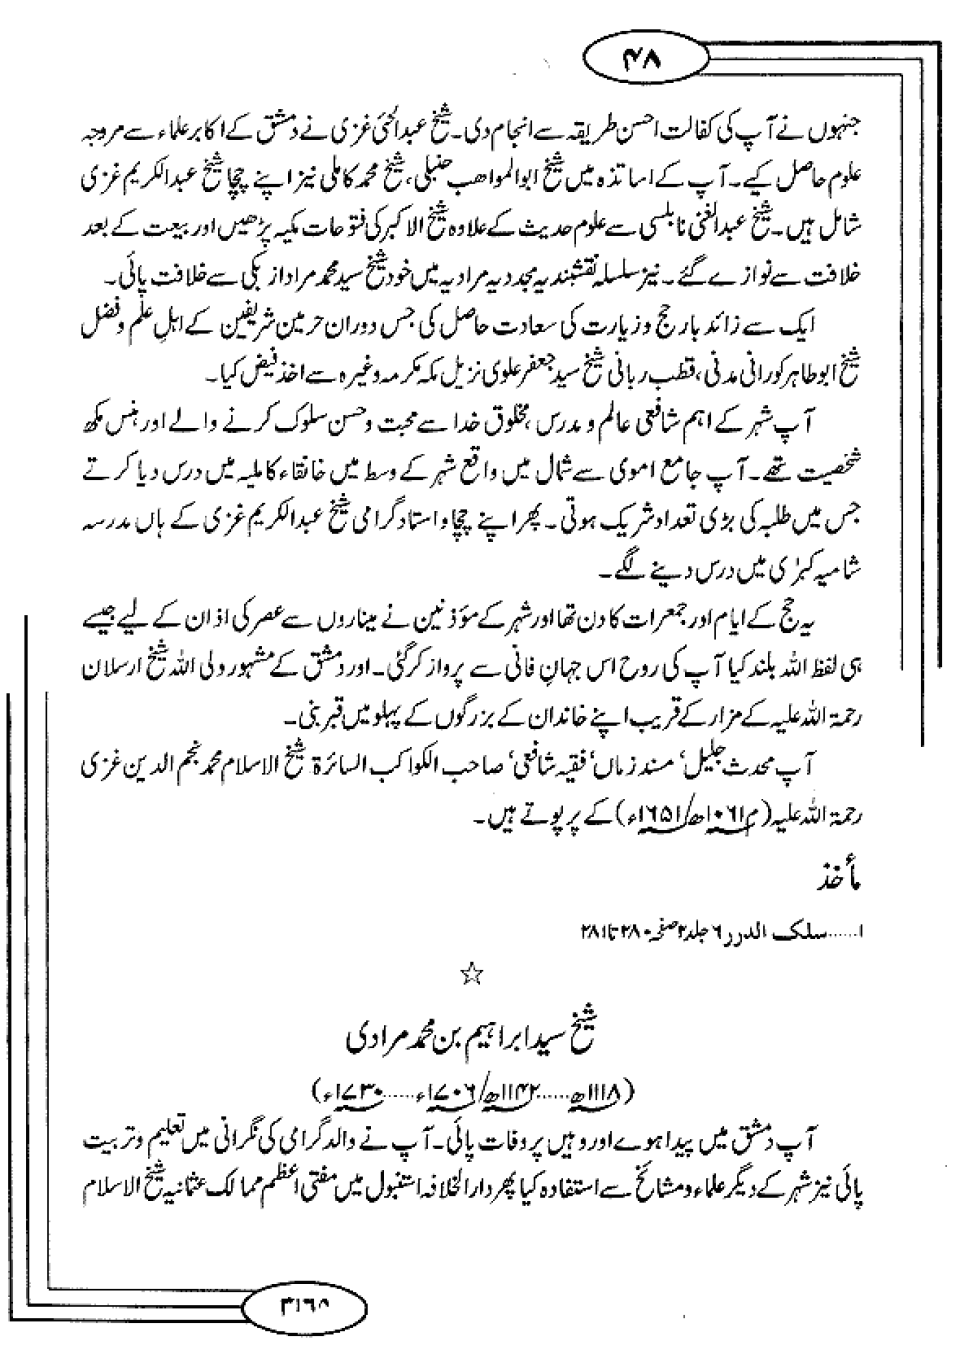 ۴۸
جنہوں نے آپ کی کفالت احسن طریقہ سے انجام دی۔ شیخ عبدالحئی غزی نے دمشق کے اکابر علماء سے مروجہ
علوم حاصل کیے۔ آپ کے اساتذہ میں شیخ ابوالمواھب حنبلی، شیخ محمد کاملی نیز اپنے چچا شیخ عبدالکریم غزی
شامل ہیں۔ شیخ عبدالغنی نابلسی سے علوم حدیث کے علاوہ شیخ الاکبر کی فتوحات مکیہ پڑھیں اور بیعت کے بعد
خلافت سے نوازے گئے۔ نیز سلسلہ نقشبندیہ مجددیہ مرادیہ میں خود شیخ سید محمد مراد ازبکی سے خلافت پائی۔
ایک سے زائد بار حج و زیارت کی سعادت حاصل کی جس دوران حرمین شریفین کے اہلِ علم و فضل
شیخ ابوطاہر کورانی مدنی، قطب ربانی شیخ سید جعفر علوی نزیل مکہ مکرمہ وغیرہ سے اخذ فیض کیا۔
آپ شہر کے اہم شافعی عالم و مدرس، مخلوق خدا سے محبت و حسن سلوک کرنے والے اور ہنس مکھ
شخصیت تھے۔ آپ جامع اموی سے شمال میں واقع شہر کے وسط میں خانقاء کاملیہ میں درس دیا کرتے
جس میں طلبہ کی بڑی تعداد شریک ہوتی۔ پھر اپنے چچا و استاد گرامی شیخ عبدالکریم غزی کے ہاں مدرسہ
شامیہ کبرٰی میں درس دینے لگے۔
یہ حج کے ایام اور جمعرات کا دن تھا اور شہر کے مؤذنین نے میناروں سے عصر کی اذان کے لیے جیسے
ہی لفظ اللہ بلند کیا آپ کی روح اس جہانِ فانی سے پرواز کر گئی۔ اور دمشق کے مشہور ولی اللہ شیخ ارسلان
رحمۃ اللہ علیہ کے مزار کے قریب اپنے خاندان کے بزرگوں کے پہلو میں قبر بنی۔
آپ محدث جلیل، مسند زماں، فقیہ شافعی، صاحب الکواکب السائرۃ شیخ الاسلام محمد نجم الدین غزی
رحمۃ اللہ علیہ (م ۱۰۶۱ھ/۱۶۵۱ء) کے پرپوتے ہیں۔
مأخذ
۱......سلک الدرر ۶ جلد ۲ صفحہ ۲۸۰ تا ۲۸۱
☆
شیخ سید ابراہیم بن محمد مرادی
(۱۱۱۸ھ.....۱۱۴۲ھ/۱۷۰۶ء......۱۷۳۰ء)
آپ دمشق میں پیدا ہوے اور وہیں پر وفات پائی۔ آپ نے والد گرامی کی نگرانی میں تعلیم و تربیت
پائی نیز شہر کے دیگر علماء و مشائخ سے استفادہ کیا پھر دارالخلافہ استنبول میں مفتی اعظم ممالک عثمانیہ شیخ الاسلام